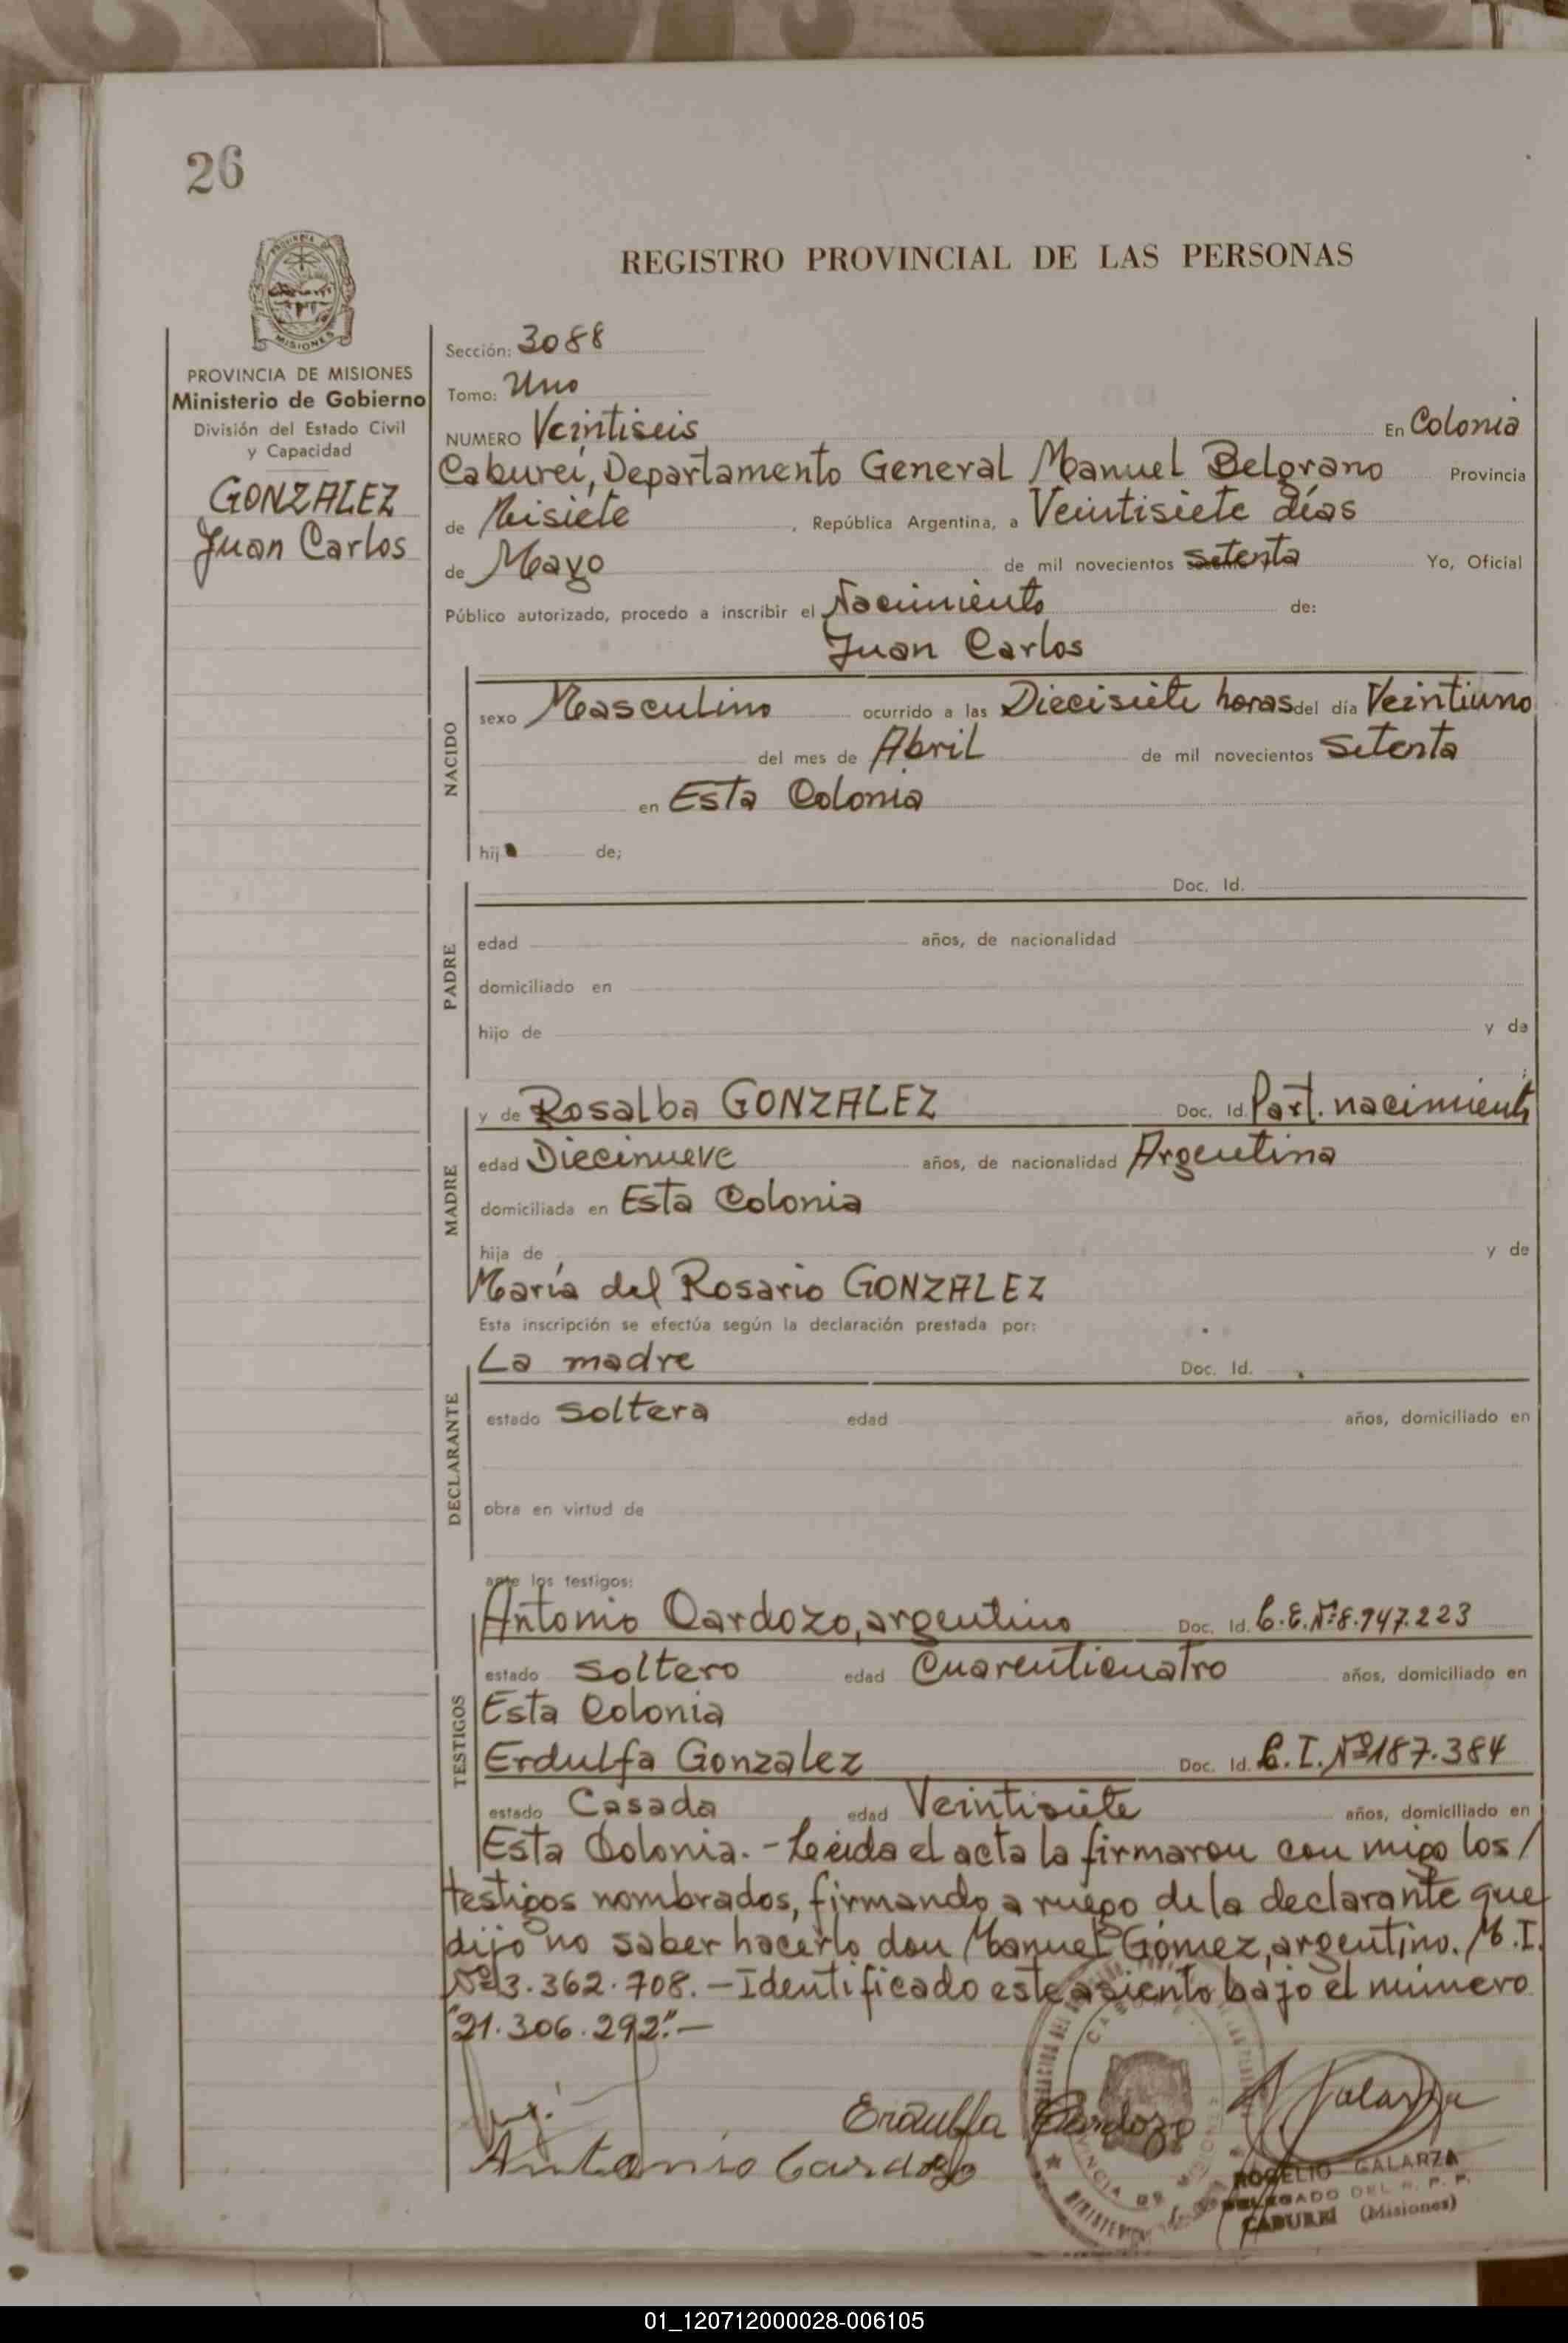 26
REGISTRO PROVINCIAL DE LAS PERSONAS
PROVINCIA DE
MISIONES
PROVINCIA DE MISIONES
Ministerio de Gobierno
División del Estado Civil
y Capacidad
GONZALEZ
Juan Carlos
Sección: 3088
Tomo: Uno
NUMERO Veintiseis En Colonia
Caburei, Departamento General Manuel Belgrano Provincia
de Misiete, República Argentina, a Veintisiete días
de Mayo de mil novecientos setenta Yo, Oficial
Público autorizado, procedo a inscribir el Nacimiento de:
Juan Carlos
NACIDO
sexo Masculino ocurrido a las Diecisiete horas del día Veintiuno
del mes de Abril de mil novecientos Setenta
en Esta Colonia
hij de;
PADRE
Doc. Id.
edad años, de nacionalidad
domiciliado en
hijo de y de
MADRE
y de Rosalba GONZALEZ Doc. Id. Part. nacimiento
edad Diecinueve años, de nacionalidad Argentina
domiciliada en Esta Colonia
hija de y de
María del Rosario GONZALEZ
Esta inscripción se efectúa según la declaración prestada por:
DECLARANTE
La madre Doc. Id.
estado Soltera edad años, domiciliado en
obra en virtud de
ante los testigos:
TESTIGOS
Antonio Cardozo, argentino Doc. Id. C.E. Nº 8.947.223
estado Soltero edad Cuarenticuatro años, domiciliado en
Esta Colonia
Erdulfa Gonzalez Doc. Id. C.I. Nº 187.384
estado Casada edad Veintisiete años, domiciliado en
Esta Colonia. - Leída el acta la firmaron con migo los /
testigos nombrados, firmando a ruego de la declarante que
dijo no saber hacerlo don Manuel Gómez, argentino. M.I.
Nº 3.362.708. - Identificado este asiento bajo el número
"21.306.292". -
Erdulfa Cardozo
Galarza
Antonio Cardozo
ROGELIO GALARZA
DELEGADO DEL R. P. P.
CABUREI (Misiones)
01_120712000028-006105